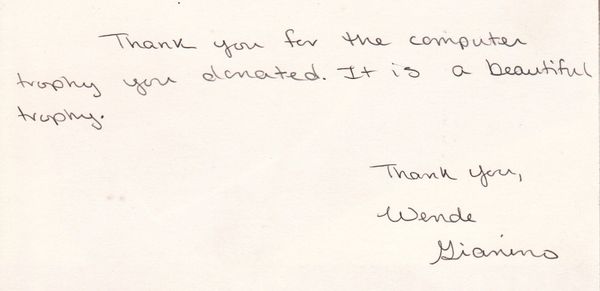 Thank you for the computer
trophy you donated. It is a beautiful
trophy.
Thank you,
Wende
Gianino